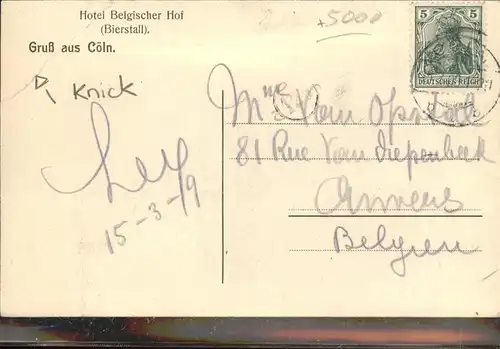 Hotel Belgischer Hof
(Bierstall).
Gruß aus Cöln.
+5000
Knick
15-3-19
5
DEUTSCHES REICH
Mme Vam Opstadt
81 Rue Vam Diepenbeek
Anvers
Belgien